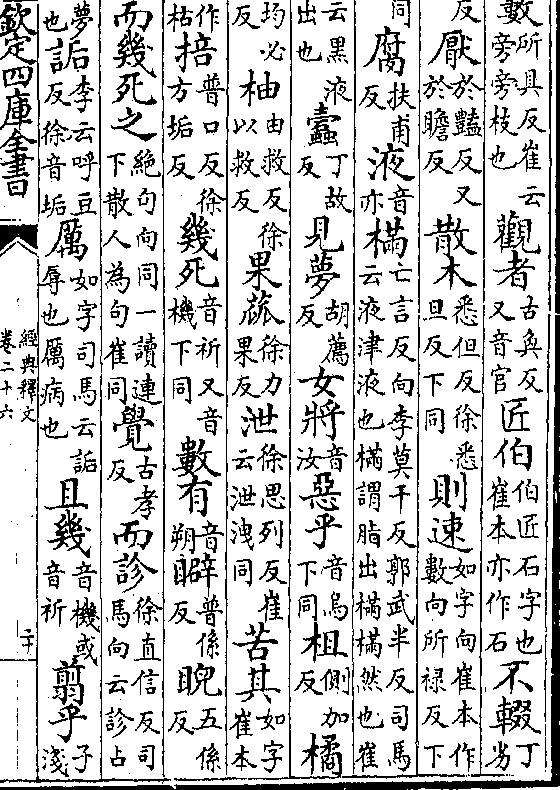 數所具反崔云旁旁枝也觀者古奐反又音官匠伯伯匠石字也崔本亦作石不輟丁劣
反厭於豔反又於瞻反散木悉但反徐悉旦反下同則速如字向崔本作數向所祿反下
同腐扶甫反液音亦樠亡言反向李莫干反郭武半反司馬云液津液也樠謂脂出樠樠然也崔
云黑液出也蠹丁故反見夢胡薦反女將音汝惡乎音烏下同柤側加反橘
均必反柚由救反徐以救反果蓏徐力果反泄徐思列反崔云泄洩同苦其如字崔本
作枯掊普口反徐方垢反幾死音祈又音機下同數有音朔䁹普係反睨五係反
而幾死之絕句向同一讀連下散人為句崔同覺古孝反而診徐直信反司馬向云診占
夢也詬李云呼豆反徐音垢厲如字司馬云詬辱也厲病也且幾音機或音祈翦乎子淺
欽定四庫全書
經典釋文
卷二十六
二十